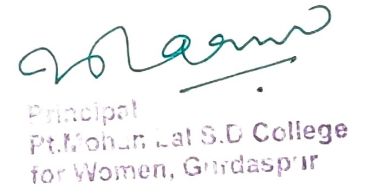 Principal
Pt.Mohan Lal S.D College
for Women, Gurdaspur